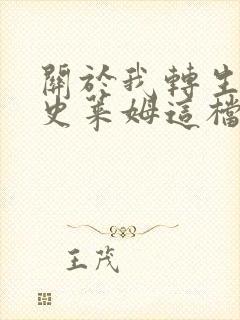 關於我轉生
史萊姆這檔
王茂